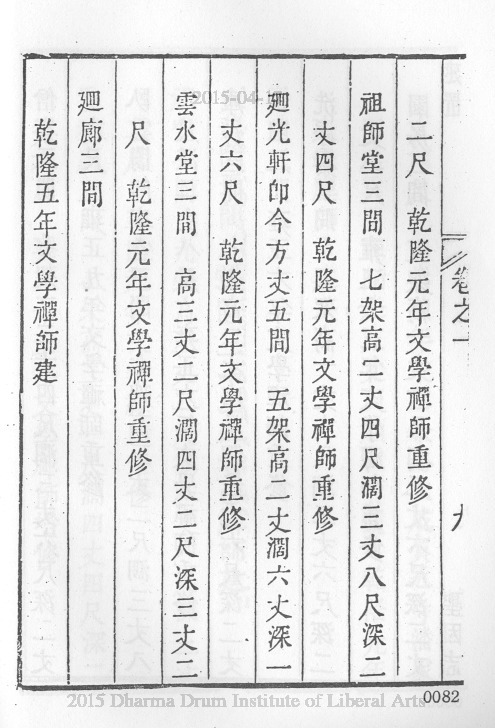 卷之一
九
二尺 乾隆元年文學禪師重修
祖師堂三間 七架高二丈四尺濶三丈八尺深二
丈四尺 乾隆元年文學禪師重修
廻光軒卽今方丈五間 五架高二丈濶六丈深一
丈六尺 乾隆元年文學禪師重修
雲水堂三間 高三丈一尺濶四丈二尺深三丈二
尺 乾隆元年文學禪師重修
廻廊三間
乾隆五年文學禪師建
2015 Dharma Drum Institute of Liberal Arts
0082